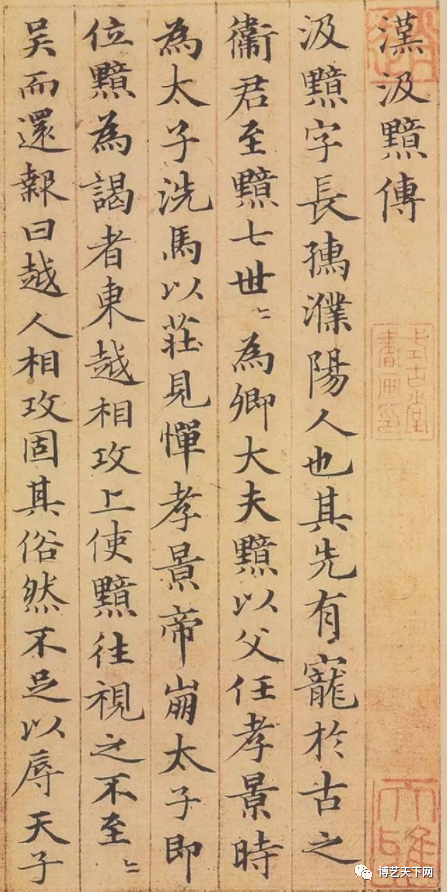 漢汲黯傳
汲黯字長孺濮陽人也其先有寵於古之
衞君至黯七世〻為卿大夫黯以父任孝景時
為太子洗馬以莊見憚孝景帝崩太子即
位黯為謁者東越相攻上使黯往視之不至〻
吴而還報曰越人相攻固其俗然不足以辱天子
大雅
博艺天下网